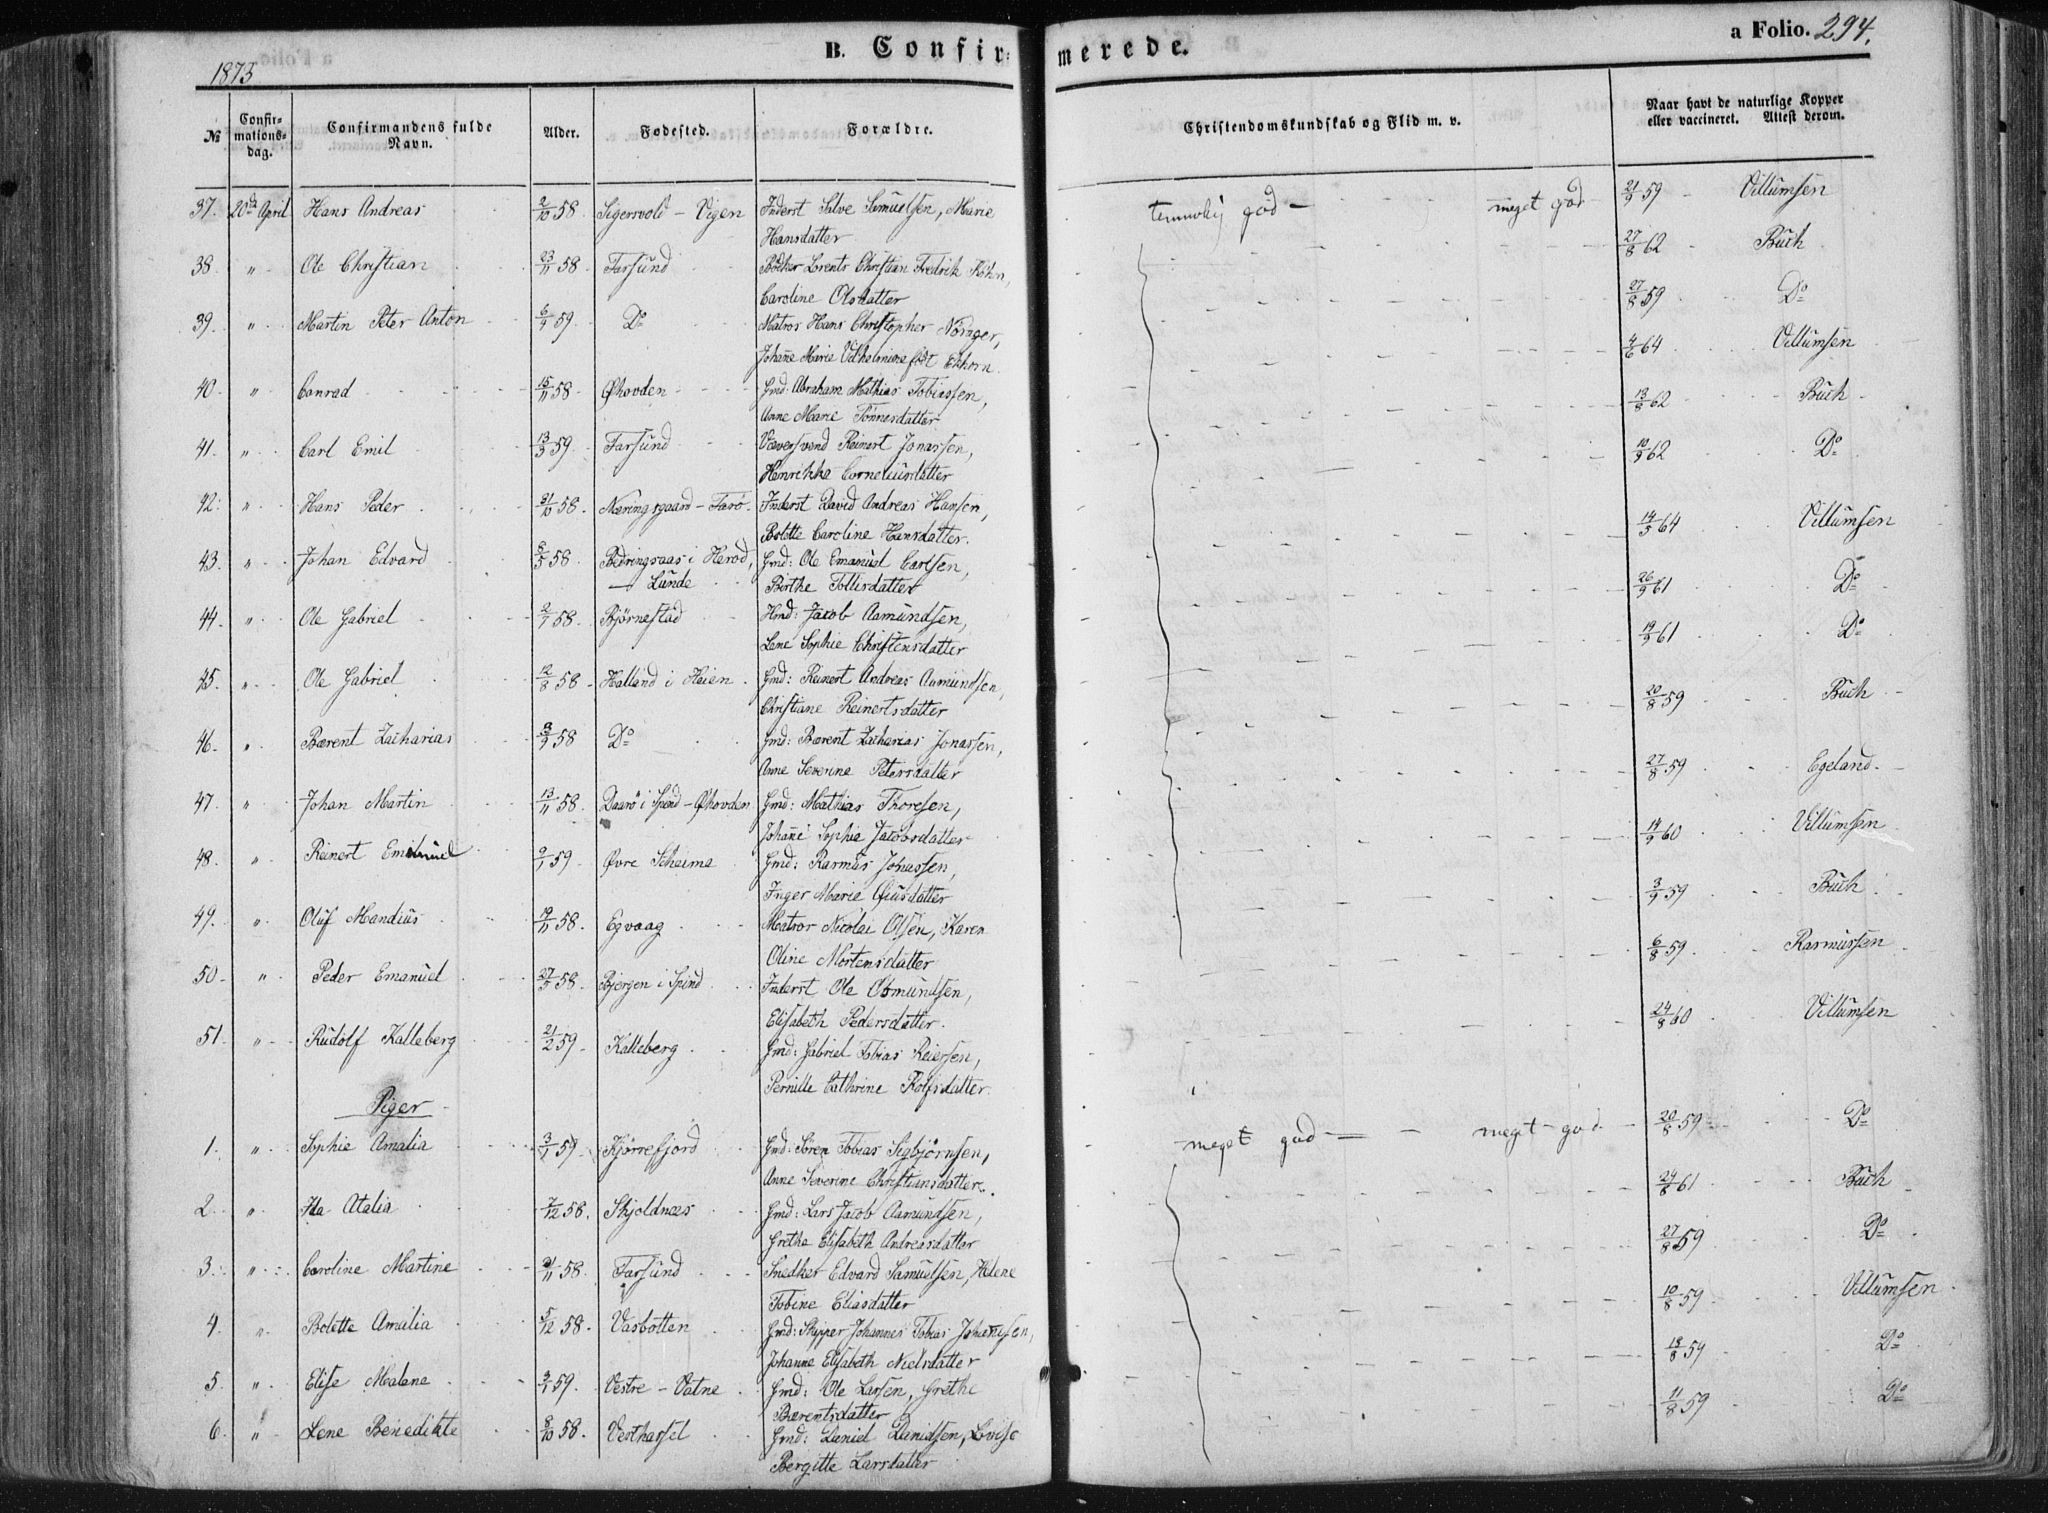 B. Confir= merede.
a Folio. 294.
1873
№ Confir-mations-dag. Confirmandens fulde Navn. Alder. Fødested. Forældre. Christendomskundskab og Flid m. v. Naar havt de naturlige Kopper eller vaccineret. Attest derom.
37. 20de April Hans Andreas 2/10 58 Sigersvold - Vigen Inderst Salve Samuelsen, Marie god - meget god 21/9 59 - Villumsen
Hansdatter
38. " Ole Christian 23/11 58. Farsund Bødker Lorents Christian Fredrik Køhn, 27/8 62 Buch
Caroline Olsdatter
39. " Martin Peter Anton 6/9 59. Do Matros Hans Christopher Nørager, 27/8 59 Do
Johanne Marie Vilhelmine født Ekhorn.
40. " Conrad 15/11 58. Øhovden Gmd: Abraham Mathias Tobiassen, 4/6 64 Villumsen
Anne Marie Tønnesdatter
41. " Carl Emil 13/3 59. Farsund Væversvend Reinert Jonassen, 13/8 62 Buch
Henrikke Corneliusdatter
42. " Hans Peder 31/10 58. Næringsgaard - Farø. Inderst David Andreas Hansen, 10/9 62 Do
Bolette Caroline Hansdatter.
43. " Johan Edvard 5/5 58. Bedringsaas i Herod, Gmd: Ole Emanuel Carlsen, 14/5 64 Villumsen
- Lunde Birthe Tollisdatter
44. " Ole Gabriel 2/7 58. Bjørnestad Hmd: Jacob Aamundsen, 26/9 61 Do
Lene Sophie Christensdatter
45. " Ole Gabriel 12/8 58 - Halland i Heien. Gmd: Reinert Andreas Aamundsen, 19/9 61 Do
Christiane Reinertsdatter
46. " Bærent Zacharias 8/9 58 Do Gmd: Bærent Zacharias Jonassen, 20/8 59 Buch
Anne Severine Petersdatter
47. " Johan Martin 13/11 58. Daarø i Spind - Øhovden Gmd: Mathias Thoresen, 27/8 59 Egeland.
Johanne Sophie Jacobsdatter
48. " Reinert Emanuel 9/1 59. Øvre Scheime Gmd: Rasmus Jonassen, 14/9 60 Villumsen
Inger Marie datter
49. " Oluf Mandius 19/11 58. Egvaag Matros Nicolai Olsen, Karen 3/9 59 Buch
Oline Mortensdatter
50. " Peder Emanuel 27/5 58. Bjergen i Spind Inderst Ole Osmundsen, 6/8 59 Rasmussen
Elisabeth Pedersdatter.
51. " Rudolf Kalleberg 21/2 59. Kalleberg Gmd: Gabriel Tobias Reiersen, 24/8 60 Villumsen
Pernille Cathrine Rolfsdatter.
Piger
1. " Sophie Amalia 3/1 59. Kjørrefjord Gmd: Søren Tobias Sigbjørnsen, meget god - - meget god 20/8 59 Do
Anne Severine Christiansdatter.
2. " Ida Atalia 7/12 58. Skjoldnæs Gmd: Lars Jacob Aamundsen, 24/8 61 Buch
Grethe Elisabeth Andreasdatter
3. " Caroline Martine 58. Farsund Snedker Edvard Samuelsen, Helene 27/8 59 Do
Tobine Eliasdatter
4. " Bolette Amalia 5/12 58. Vasbotten Gmd: Skipper Johannes Tobias Johannsen, 10/8 59 Villumsen
Johanne Elisabeth Nielsdatter
5. " Elise Malene 3/1 59. Vestre - Vatne Gmd: Ole Larsen, Grethe 18/8 59 Do
Bærentsdatter
6. " Lene Benedikte 8/10 58. Vesthassel Gmd: Daniel Danielsen, Lovise 11/8 59 Do
Bergitte Larsdatter